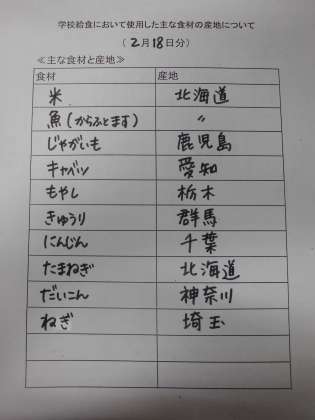 学校給食において使用した主な食材の産地について
(2月18日分)
≪主な食材と産地≫
食材 産地
米 北海道
魚(からふとます) 〃
じゃがいも 鹿児島
キャベツ 愛知
もやし 栃木
きゅうり 群馬
にんじん 千葉
たまねぎ 北海道
だいこん 神奈川
ねぎ 埼玉